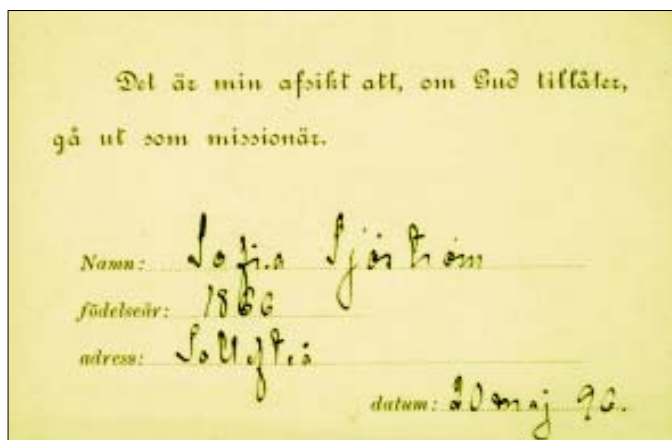 Det är min afsikt att, om Gud tillåter,
gå ut som missionär.
Namn: Sofia Sjöström
födelseår: 1866
adress: Sollefteå
datum: 20 maj 96.